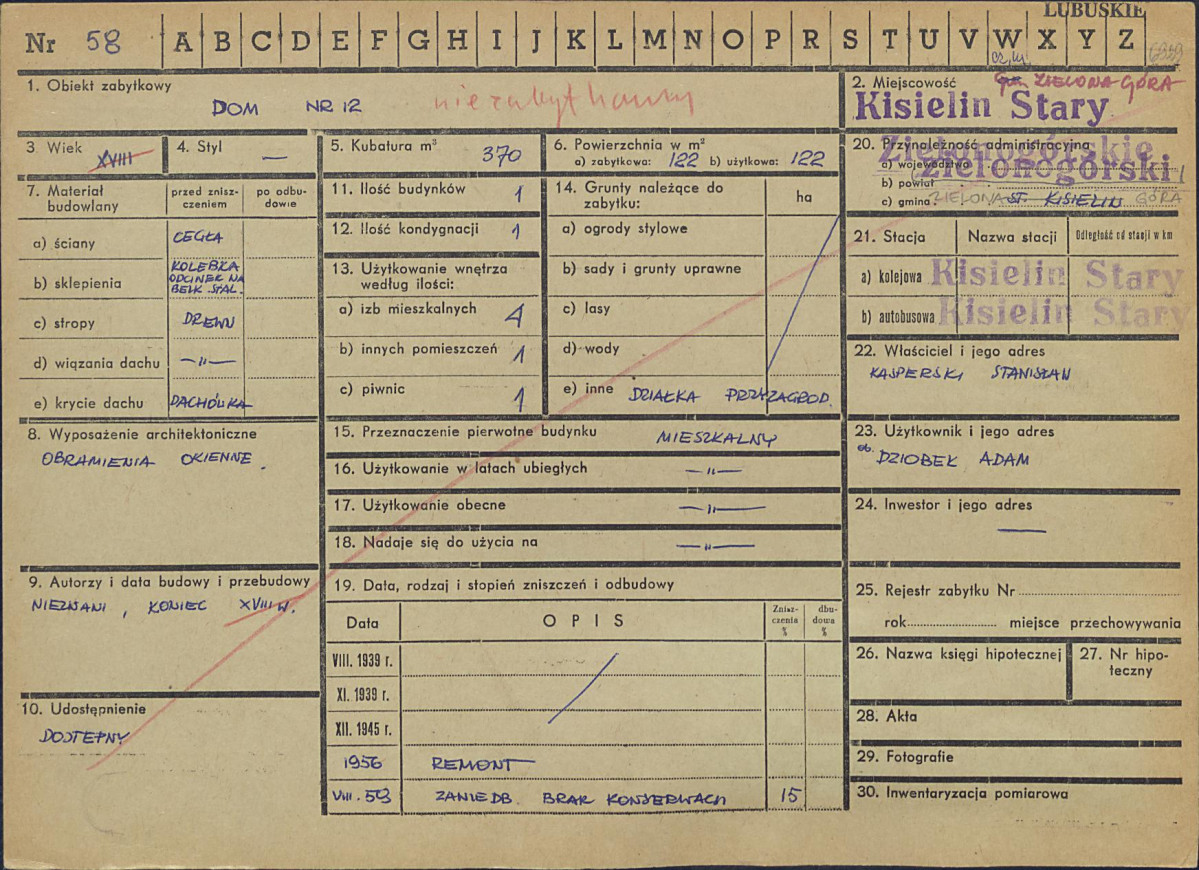 LUBUSKIE
Nr 58 A B C D E F G H I J K L M N O P R S T U V W X Y Z
1. Obiekt zabytkowy
DOM NR 12
2. Miejscowość
ZIELONA GÓRA
Kisielin Stary
3. Wiek XVIII
4. Styl —
5. Kubatura m³ 370
6. Powierzchnia w m²
a) zabytkowa: 122 b) użytkowa: 122
20. Przynależność administracyjna
a) województwo Zielonogórskie
b) powiat zielonogórski
c) gmina ZIELONA ST. KISIELIN GÓRA
7. Materiał budowlany
przed zniszczeniem
po odbudowie
a) ściany CEGŁA
b) sklepienia KOLEBKA ODCINEK NA BELK. STAL.
c) stropy DREWN
d) wiązania dachu —„—
e) krycie dachu DACHÓWKA
11. Ilość budynków 1
12. Ilość kondygnacji 1
13. Użytkowanie wnętrza według ilości:
a) izb mieszkalnych 4
b) innych pomieszczeń 1
c) piwnic 1
14. Grunty należące do zabytku:
ha
a) ogrody stylowe
b) sady i grunty uprawne
c) lasy
d) wody
e) inne DZIAŁKA PRZYZAGROD.
21. Stacja
Nazwa stacji
Odległość od stacji w km
a) kolejowa Kisielin Stary
b) autobusowa Kisielin Stary
22. Właściciel i jego adres
KASPERSKI STANISŁAW
8. Wyposażenie architektoniczne
OBRAMIENIA OKIENNE.
15. Przeznaczenie pierwotne budynku MIESZKALNY
16. Użytkowanie w latach ubiegłych —„—
17. Użytkowanie obecne —„—
18. Nadaje się do użycia na —„—
23. Użytkownik i jego adres
ob. DZIOBEK ADAM
24. Inwestor i jego adres
—
9. Autorzy i data budowy i przebudowy
NIEZNANI, KONIEC XVIII W.
10. Udostępnienie
DOSTĘPNY
19. Data, rodzaj i stopień zniszczeń i odbudowy
Data
OPIS
Zniszczenia %
dbudowa %
VIII. 1939 r.
XI. 1939 r.
XII. 1945 r.
1956 REMONT
VIII. 59 ZANIEDB. BRAK KONSERWACJI 15
25. Rejestr zabytku Nr
rok miejsce przechowywania
26. Nazwa księgi hipotecznej
27. Nr hipoteczny
28. Akta
29. Fotografie
30. Inwentaryzacja pomiarowa